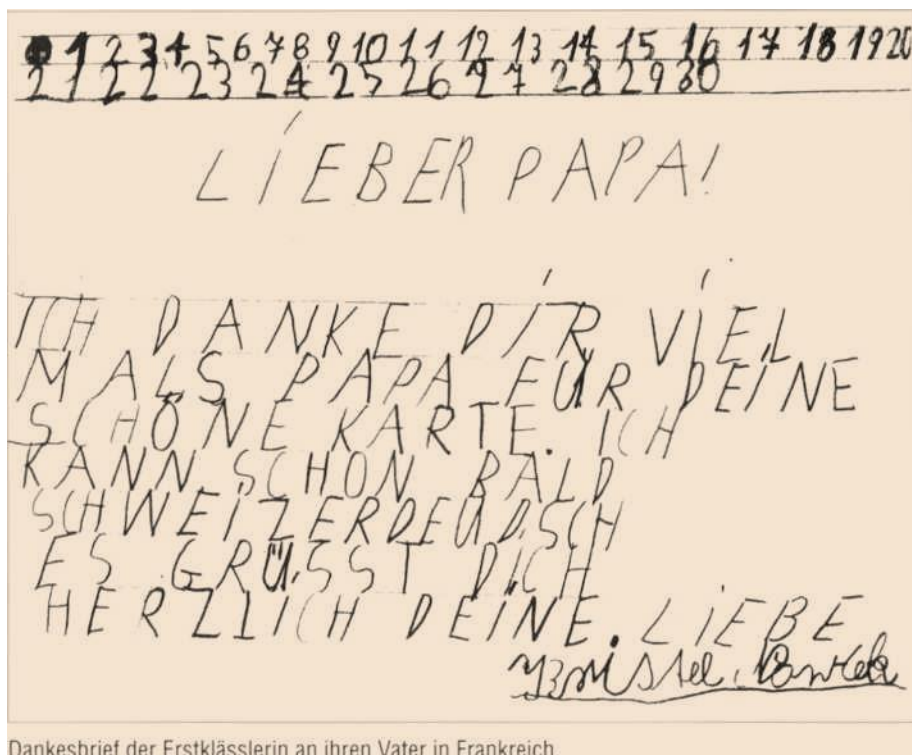 0 1 2 3 4 5 6 7 8 9 10 11 12 13 14 15 16 17 18 19 20
21 22 23 24 25 26 27 28 29 30
LIEBER PAPA!
ICH DANKE DIR VIEL
MALS PAPA FÜR DEINE
SCHÖNE KARTE. ICH
KANN SCHON BALD
SCHWEIZERDEUDSCH
ES GRÜSST DICH
HERZLICH DEINE. LIEBE
Dankesbrief der Erstklässlerin an ihren Vater in Frankreich